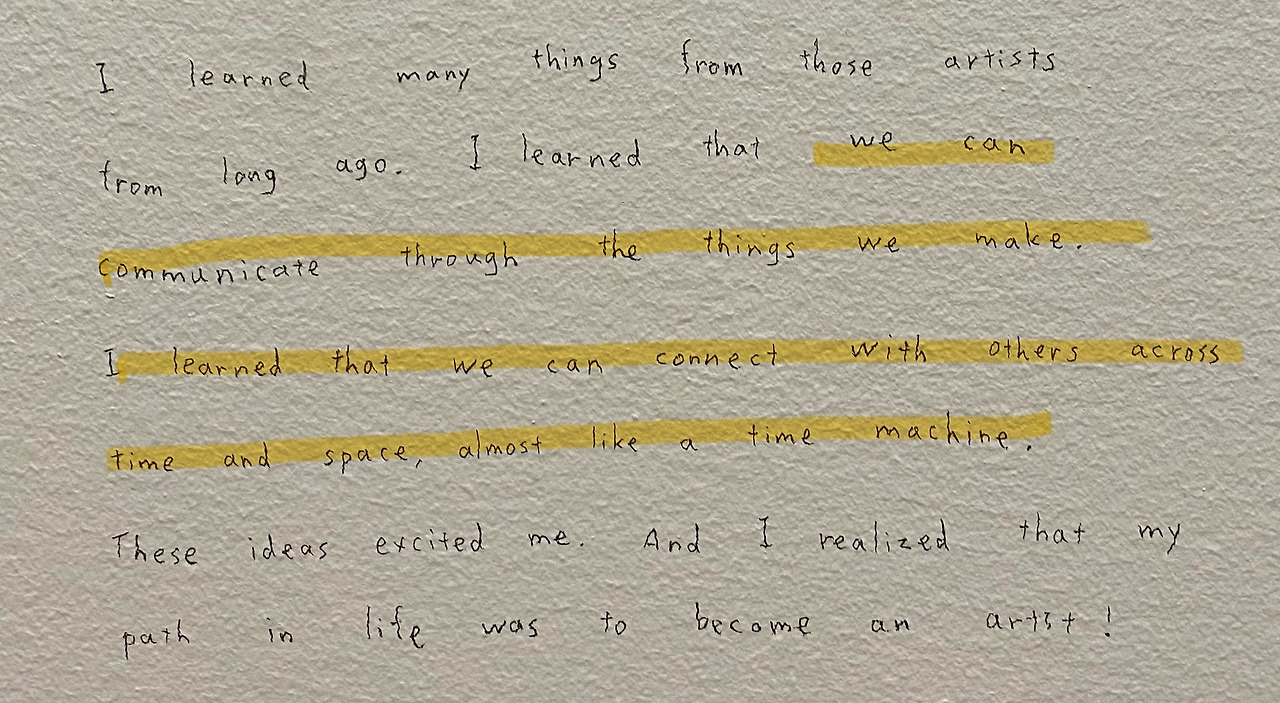 I learned many things from those artists
from long ago. I learned that we can
communicate through the things we make.
I learned that we can connect with others across
time and space, almost like a time machine.
These ideas excited me. And I realized that my
path in life was to become an artist!